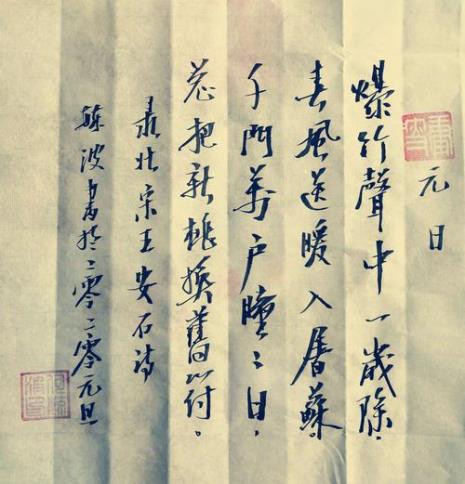 元日
爆竹聲中一歲除，
春風送暖入屠蘇。
千門萬户瞳〻日，
总把新桃換舊符。
录北宋王安石诗
波書於二零二零元旦